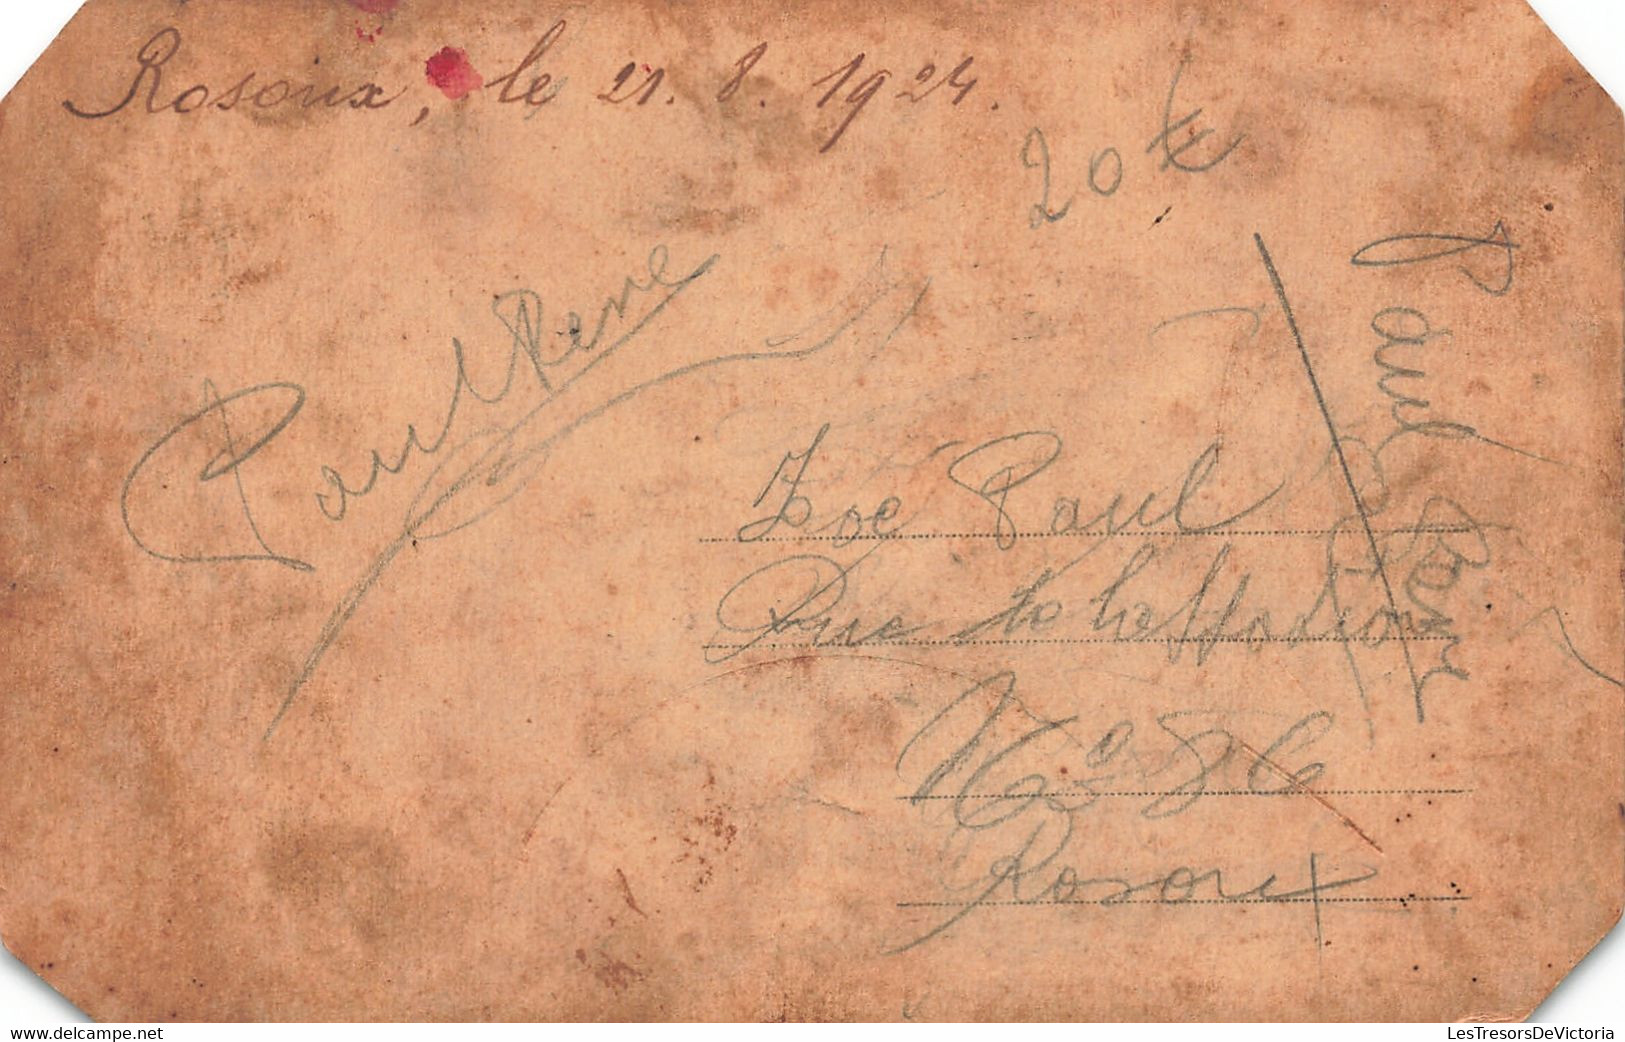 Rosoux, le 21. 8. 1924.
20
Paul Rene
Paul
Zoe Paul
Rue
Nº
Rosoux
delcampe.net
LesTresorsDeVictoria